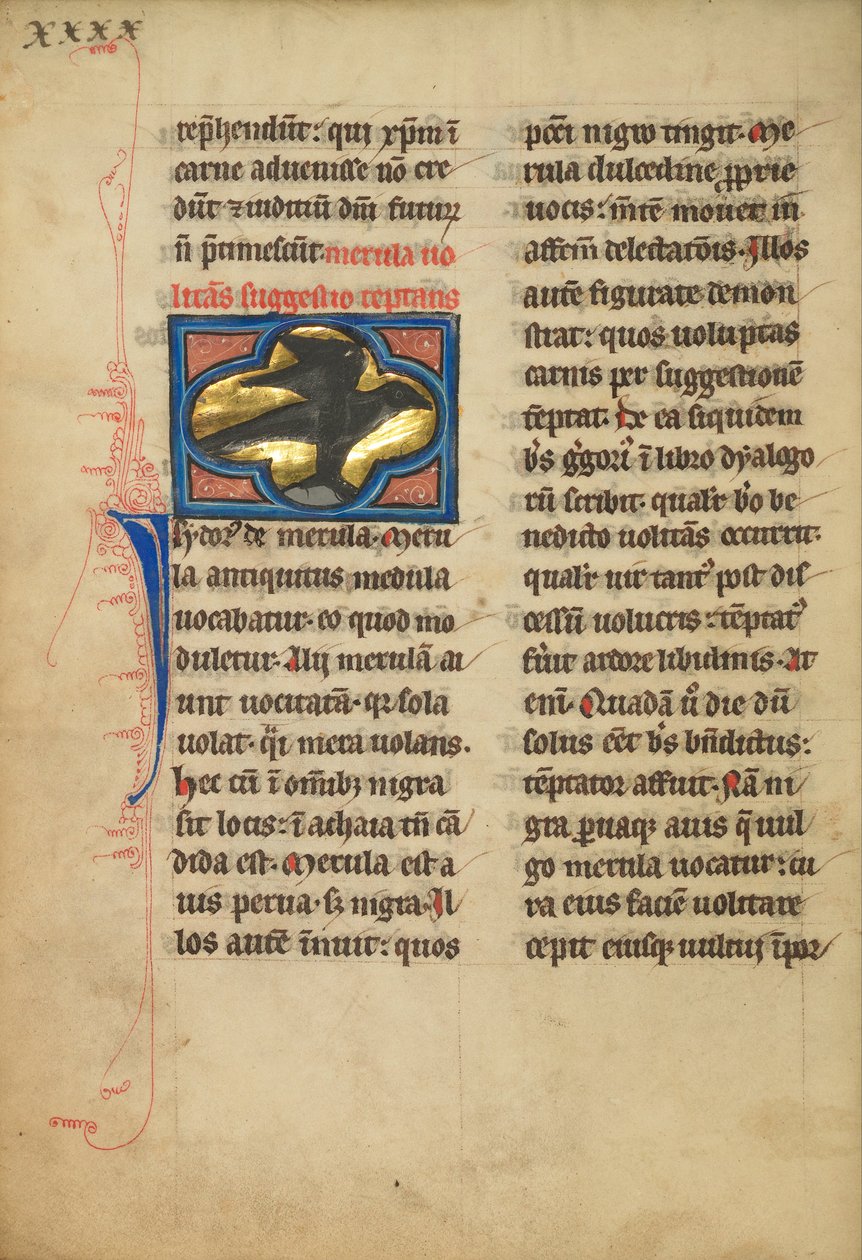 xxxx
rep̄hendūt: qui xp̄m ī
carne aduenisse nō cre
dūt ⁊ iuditiū dn̄i futurꝝ
n̄ p̄timescūt. merula uo
litās suggestio teptans
Isydorꝰ de merula. Meru
la antiquitus medula
uocabatur. eo quod mo
duletur. Alij merulā ai
unt uocitatā. qꝛ sola
uolat. q̈i mera uolans.
hec cū ī om̄ibꝫ nigra
sit locis: ī achaia tn̄ cā
dida est. Merula est a
uis parua. sꝫ nigra. Il
los autē īnuit: quos
pcc̄i nigro tingit. Me
rula dulcedine ꝓprie
uocis: m̄tē mouet in
affc̄m delectatōis. Illos
autē figurate demon
strat: quos uoluptas
carnis per suggestionē
tēptat. De ea siquidem
b̄s g̊goriꝰ ī libro dyalogo
rū scribit. qualr̄ b̄o be
nedicto uolitās occurrit.
qualr̄ uir tantꝰ post dis
cessū uolucris: tēptatꝰ
fu̇it ardore libidinis. At
eni̅. Quadā ů die dū
solus eēt b̄s bn̄dictus:
tēptator affuit. Nā ni
gra ꝑuaqꝫ auis q̄ uul
go merula uocatur: cir
ca eius faciē uolitare
cepit eiusqꝫ uultuj īpor